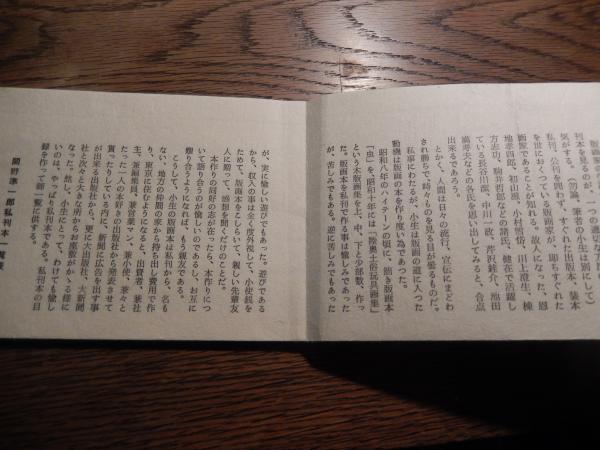 刊本を見るのが、一つの適切な方
気がする。(勿論、筆者の小生は別にして)
私刊、公刊を問わず、すぐれた出版本、装本
を世におくっている版画家が、即ちすぐれた
画家であることが知れる。故人になった、恩
地孝四郎、初山滋、下の村雪岱、川上澄生、棟
方志功、駒井哲郎などの諸氏、健在で活躍し
ている長谷川潔、中川一政、芹沢銈介、池田
満寿夫などの各氏を思い出してみると、合点
出来るであろう。
とかく、人間は日々の流行、宣伝にまどわ
され勝ちで、時々ものを見る目が曇るものだ。
私事にわたるが、小生は版画の道に入った
動機は版画の本を作り度い為であった。
昭和八年のハイテーンの頃に、箇き版画本
「虫」を、昭和十年には「陸奥土俗玩具画集」
という木版画集を上、中、下と少部数、作っ
た。版画本を私刊で作る事は愉しみであった
が、苦しみでもある。逆に苦しみでもあった
が、実に愉しい遊びでもあった。遊びである
から、収入の事は全く度外視して、小使銭を
ためて、版画本をこしらいて、親しい先輩友
人に贈って、感想を聞くだけのことだ。
本作りの同好の志が在ったら、本作りにつ
いて語り合うのが愉しいのでした。お互に
贈り合うようになれば、もう親友である。
こうして、小生の版画本は私刊から、名も
ない、地方の仲間の家から持ち出し費用で作
り、東京に住むようになると、出費者、兼社
主、兼編集員、兼営業マン、兼小使、兼々と
たった一人の本好きの出版社から発表させて
貰ったりしている内に、新聞に広告を出す事
が出来る出版社から、更に大出版社、大新聞
社と次々と大きな所からお座敷がかゝる様に
なった。然し、小生にとって、わけても愉し
いのは、やっぱり私刊本である。私刊本の目
録を作って御一覧に供する。
関野準一郎私刊本一覧表